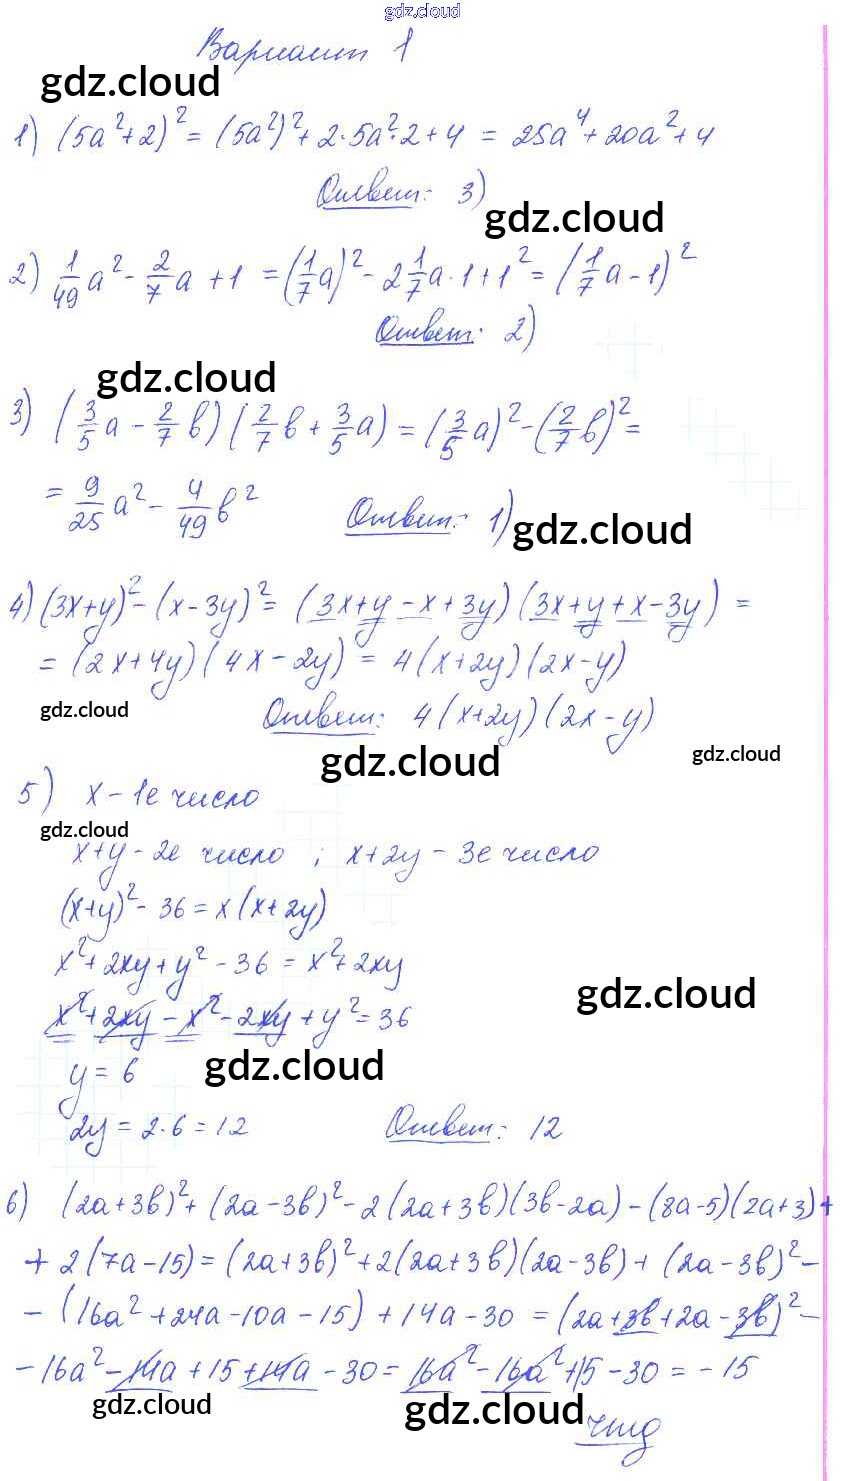 gdz.cloud
Вариант 1
gdz.cloud
1) (5a²+2)² = (5a²)²+ 2·5a²·2 + 4 = 25a⁴+ 20a²+ 4
Ответ: 3)
gdz.cloud
2) 1/49 a² - 2/7 a + 1 = (1/7 a)² - 2 1/7 a·1 + 1² = (1/7 a - 1)²
Ответ: 2)
gdz.cloud
3) (3/5 a - 2/7 b)(2/7 b + 3/5 a) = (3/5 a)² - (2/7 b)² =
= 9/25 a² - 4/49 b² Ответ: 1)
gdz.cloud
4) (3x+y)² - (x-3y)² = (3x+y - x + 3y)(3x+y+x-3y) =
= (2x+4y)(4x-2y) = 4(x+2y)(2x-y)
gdz.cloud
Ответ: 4(x+2y)(2x-y)
gdz.cloud
gdz.cloud
5) x - 1е число
gdz.cloud
x+y - 2е число ; x+2y - 3е число
(x+y)² - 36 = x(x+2y)
x²+2xy+y² - 36 = x²+2xy
gdz.cloud
x²+2xy - x² - 2xy + y² = 36
y = 6
gdz.cloud
2y = 2·6 = 12 Ответ: 12
6) (2a+3b)²+ (2a-3b)² - 2(2a+3b)(3b-2a) - (8a-5)(2a+3)+
+ 2(7a-15) = (2a+3b)²+2(2a+3b)(2a-3b)+ (2a-3b)² -
- (16a²+24a-10a-15) + 14a-30 = (2a+3b+2a-3b)² -
- 16a² - 14a + 15 + 14a - 30 = 16a² - 16a² + 15 - 30 = - 15
gdz.cloud
gdz.cloud
чтд